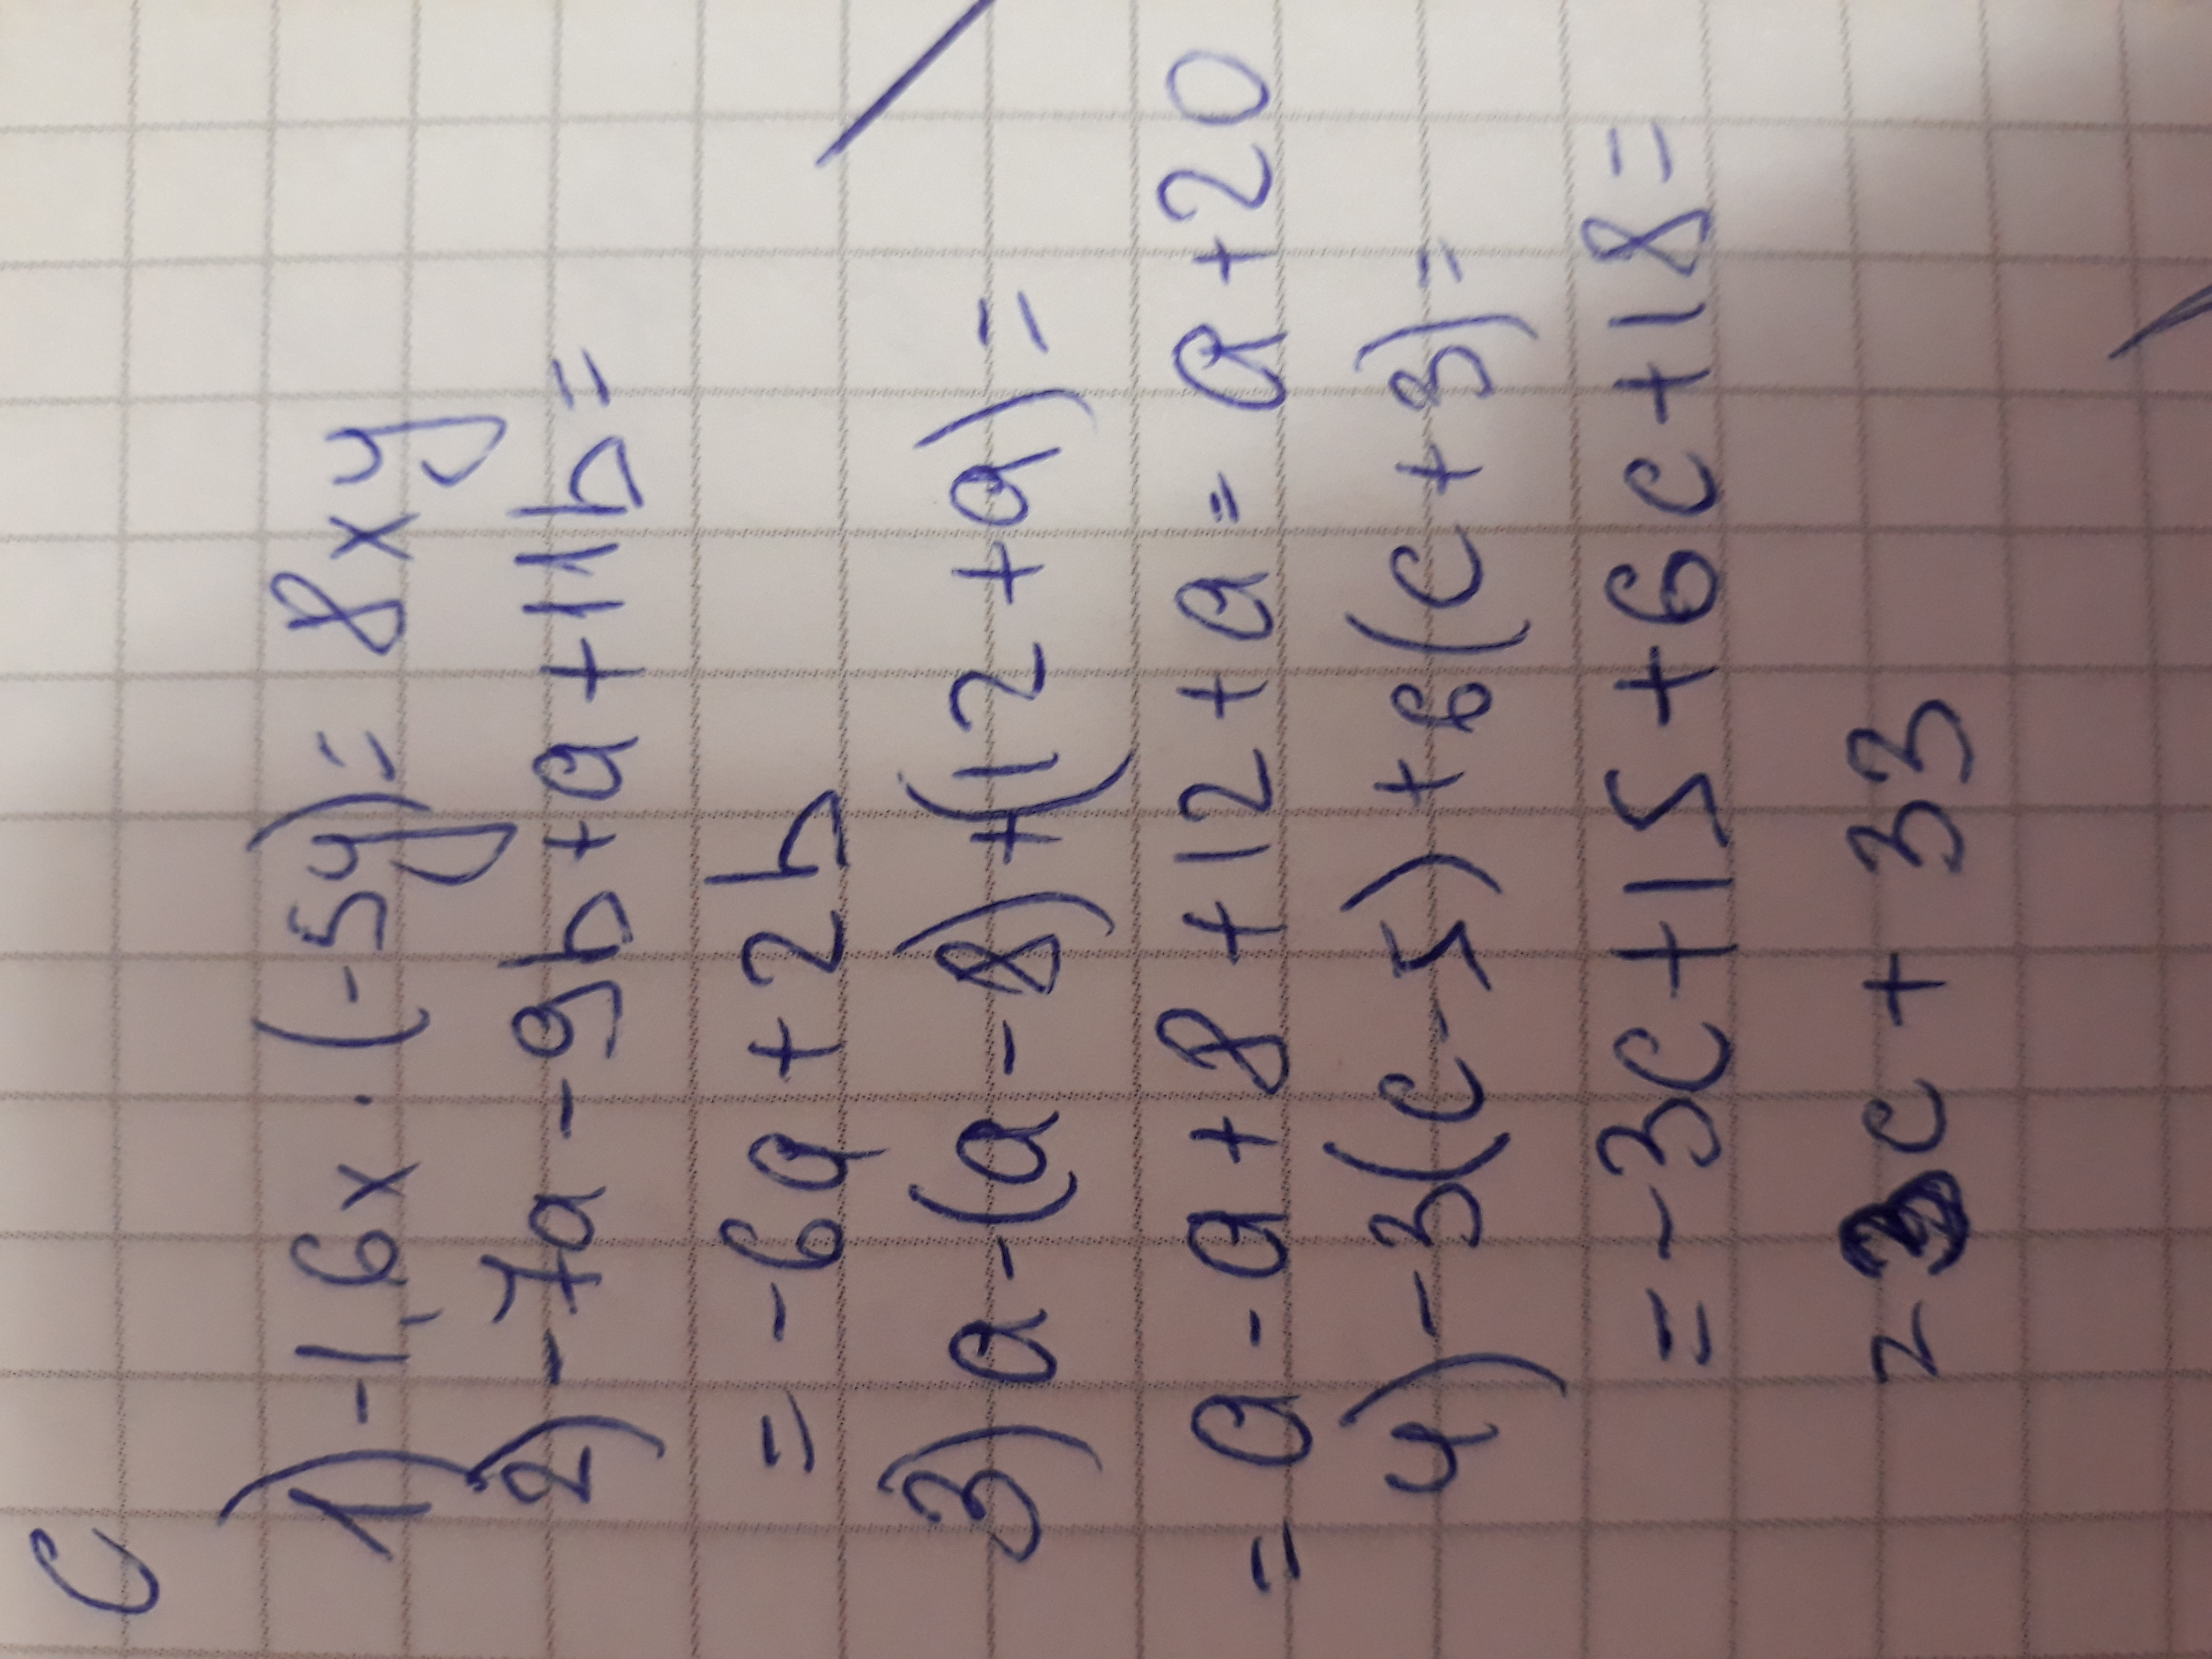 C
1) -1,6x · (-5y) = 8xy
2) -7a - 9b + a + 11b =
= -6a + 2b
3) a - (a - 8) + (12 + a) =
= a - a + 8 + 12 + a = a + 20
4) -3(c - 5) + 6(c + 3) =
= -3c + 15 + 6c + 18 =
= 3c + 33